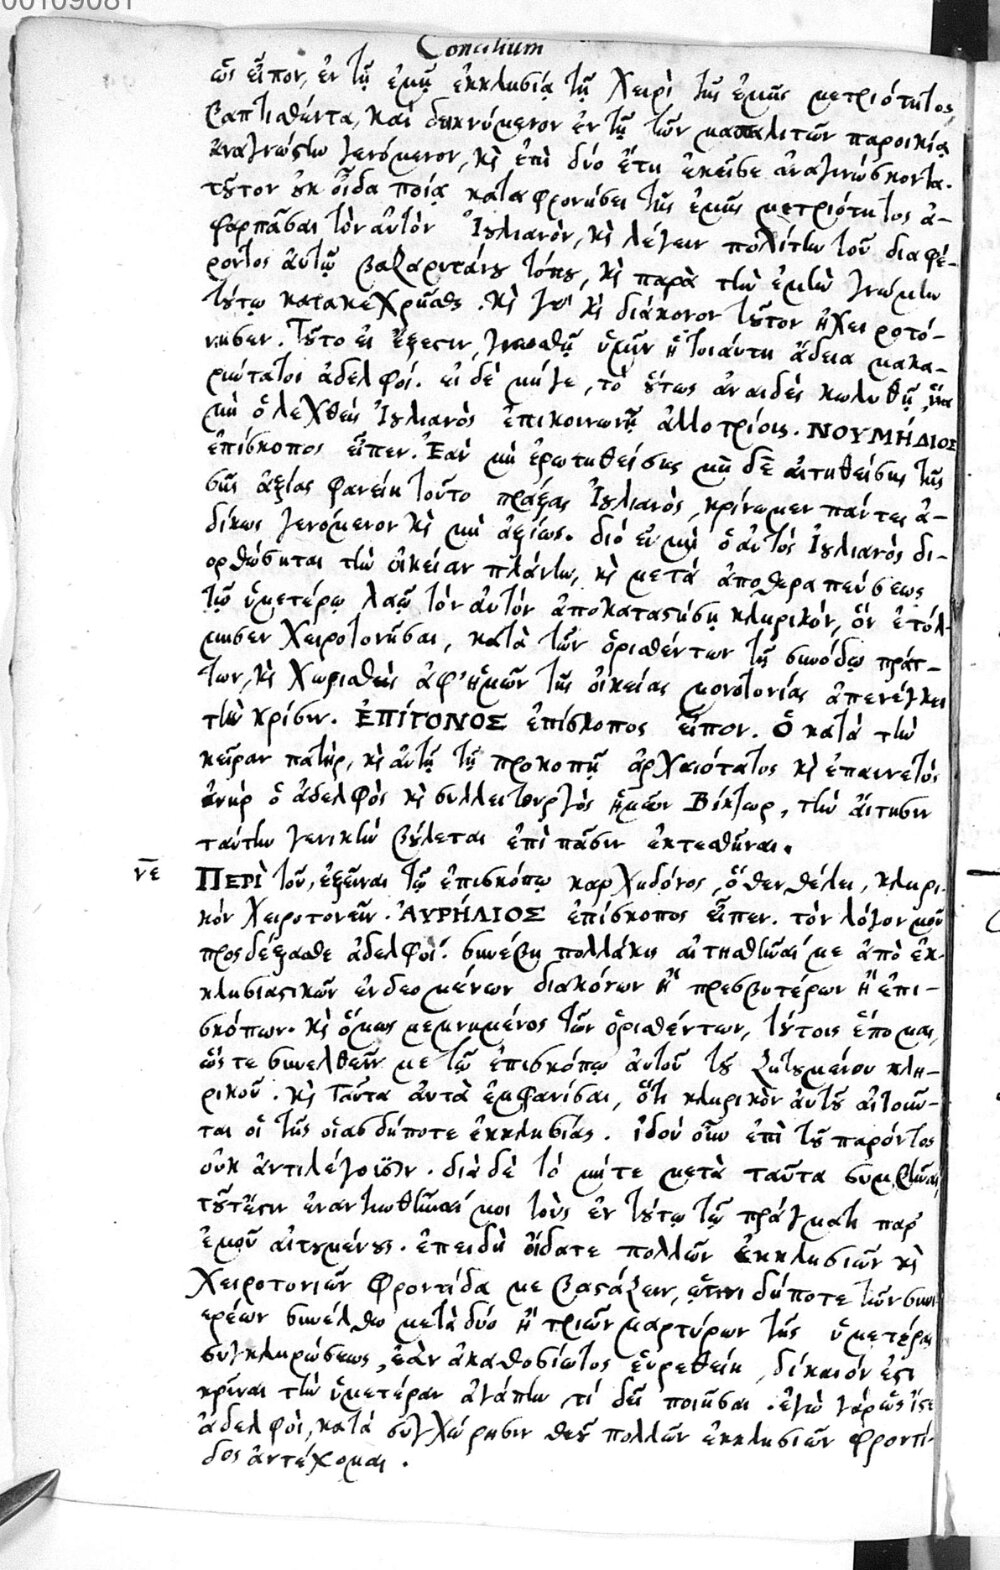 00109081
Concilium
ὡς εἶπον, ἐν τῇ ἐμῇ ἐκκλησίᾳ τῇ χειρὶ τῆς ἐμῆς μετριότητος
βαπτισθέντα, καὶ δεικνύμενον ἐν τῇ τῶν μαπαλιτῶν παροικίᾳ
ἀναγνώστην γενόμενον, κὶ ἐπὶ δύο ἔτη ἐκεῖσε ἀναγινώσκοντα.
τοῦτον οὐκ οἶδα ποίᾳ καταφρονήσει τῆς ἐμῆς μετριότητος ἀ-
φαρπᾶσαι τὸν αὐτὸν Ἰουλιανὸν, κὶ λέγειν πολίτην τοῦ διαφέ-
ροντος αὐτῷ βαζαριτάνου τόπου, κὶ παρὰ τὴν ἐμὴν γνώμην
τούτῳ κατακεχρῆσθαι. κὶ γὰρ κὶ διάκονον τοῦτον ἐχειροτό-
νησεν. τοῦτο εἰ ἔξεστιν, γνωσθῇ ὑμῖν ἡ τοιαύτη ἄδεια μακα-
ριώτατοι ἀδελφοί. εἰ δὲ μήγε, τὸ οὕτως ἀναιδὲς κωλυθῇ, ἵνα
μὴ ὁ λεχθεὶς Ἰουλιανὸς ἐπικοινωνῇ ἀλλοτρίοις. ΝΟΥΜΗΔΙΟΣ
ἐπίσκοπος εἶπεν. Ἐὰν μὴ ἐρωτηθείσης μὴ δὲ αἰτηθείσης τῆς
σῆς ἀξίας φανείη τοῦτο πράξας Ἰουλιανὸς, κρίνωμεν πάντες ἀ-
δίκως γενόμενον κὶ μὴ ἀξίως. διὸ εἰ μὴ ὁ αὐτὸς Ἰουλιανὸς δι-
ορθώσηται τὴν οἰκείαν πλάνην, κὶ μετὰ ἀποθεραπεύσεως
τῷ ὑμετέρῳ λαῷ τὸν αὐτὸν ἀποκαταστήσῃ κληρικόν, ὃν ἐτόλ-
μησεν χειροτονῆσαι, κατὰ τῶν ὁρισθέντων τῇ συνόδῳ πράτ-
των, κὶ χωρισθεὶς ἀφ' ἡμῶν τῆς οἰκείας μονοτονίας ἀπενέγκει
τὴν κρίσιν. ἘΠΙΓΟΝΟΣ ἐπίσκοπος εἶπον. Ὁ κατὰ τὴν
κεῖραν πατὴρ, κὶ αὐτῇ τῇ προκοπῇ ἀρχαιότατος κὶ ἐπαινετὸς
ἀνὴρ ὁ ἀδελφὸς κὶ συλλειτουργὸς ἡμῶν Βίκτωρ, τὴν αἴτησιν
ταύτην γενικὴν βούλεται ἐπὶ πᾶσιν ἐκτεθῆναι.
νε ΠΕΡῚ τοῦ, ἐξεῖναι τῷ ἐπισκόπῳ καρχηδόνος, ὅθεν θέλει, κληρι-
κόν χειροτονεῖν. ἈΥΡΗΛΙΟΣ ἐπίσκοπος εἶπεν. τὸν λόγον μοῦ
προσδέξασθε ἀδελφοί. συνέβη πολλάκις αἰτηθῆναί με ἀπὸ ἐκ-
κλησιαστικῶν ἐνδεομένων διακόνων ἢ πρεσβυτέρων ἢ ἐπι-
σκόπων. κὶ ὅμως μεμνημένος τῶν ὁρισθέντων, τούτοις ἕπομαι,
ὥστε συνελθεῖν με τῷ ἐπισκόπῳ αὐτοῦ τοῦ ζητουμένου κλη-
ρικοῦ. κὶ ταῦτα αὐτὰ ἐμφανίσαι, ὅτι κληρικὸν αὐτοῦ αἰτοῦν-
ται οἱ τῆς οἱασδήποτε ἐκκλησίας. ἰδού οὖν ἐπὶ τοῦ παρόντος
οὐκ ἀντιλέγουσιν. διὰ δὲ τὸ μήτε μετὰ ταῦτα συμβῆναι,
τοῦτέστιν ἐναντιωθῆναί μοι τοὺς ἐν τούτῳ τῷ πράγματι παρ'
ἐμοῦ αἰτουμένους. ἐπειδὴ οἴδατε πολλῶν ἐκκλησιῶν κὶ
χειροτονιῶν φροντίδα με βαστάζειν, ᾧτινι δήποτε τῶν συνι-
ερέων συνέλθω μετὰ δύο ἢ τριῶν μαρτύρων τῆς ὑμετέρας
συγκληρώσεως, ἐὰν ἀκαθοσίωτος εὑρεθείη, δίκαιόν ἐστι
κρῖναι τὴν ὑμετέραν ἀγάπην τί δεῖ ποιῆσαι. ἐγὼ γὰρ ὡς ἴστε
ἀδελφοὶ, κατὰ συγχώρησιν θεοῦ πολλῶν ἐκκλησιῶν φροντί-
δος ἀντέχομαι.